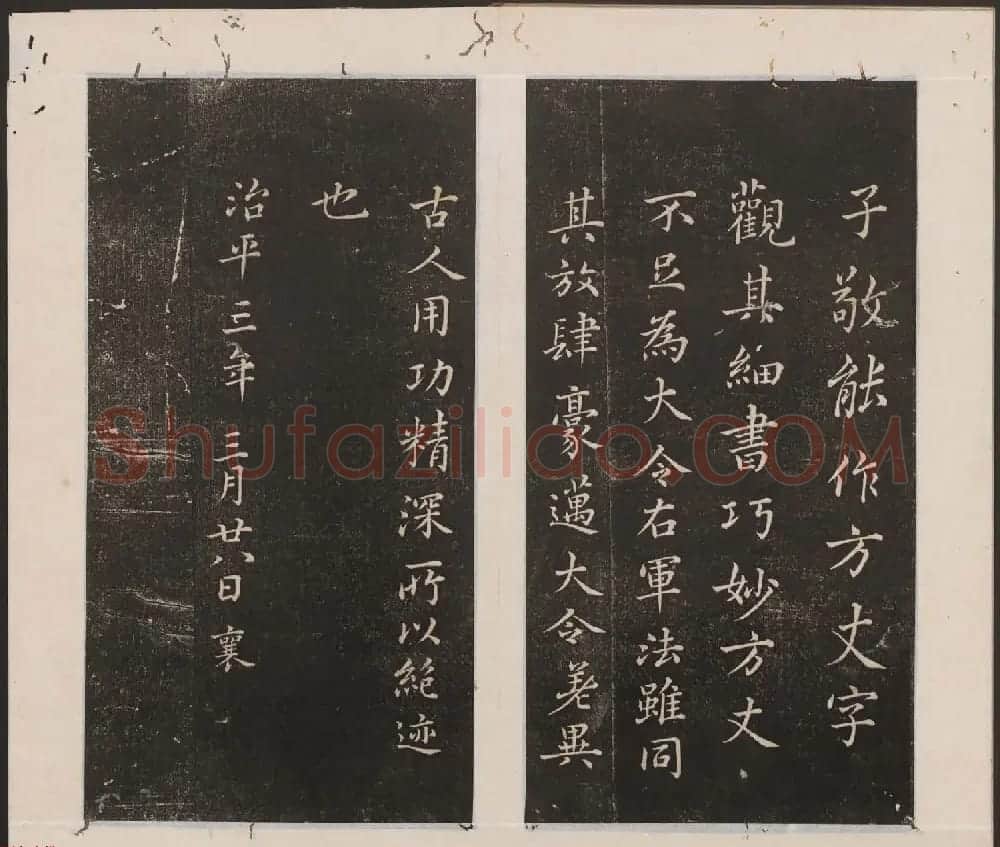 子敬能作方丈字
觀其細書巧妙方丈
不足為大令右軍法雖同
其放肆豪邁大令差異
古人用功精深所以絕迹
也
治平三年三月廿八日襄
Shufaziliao.COM